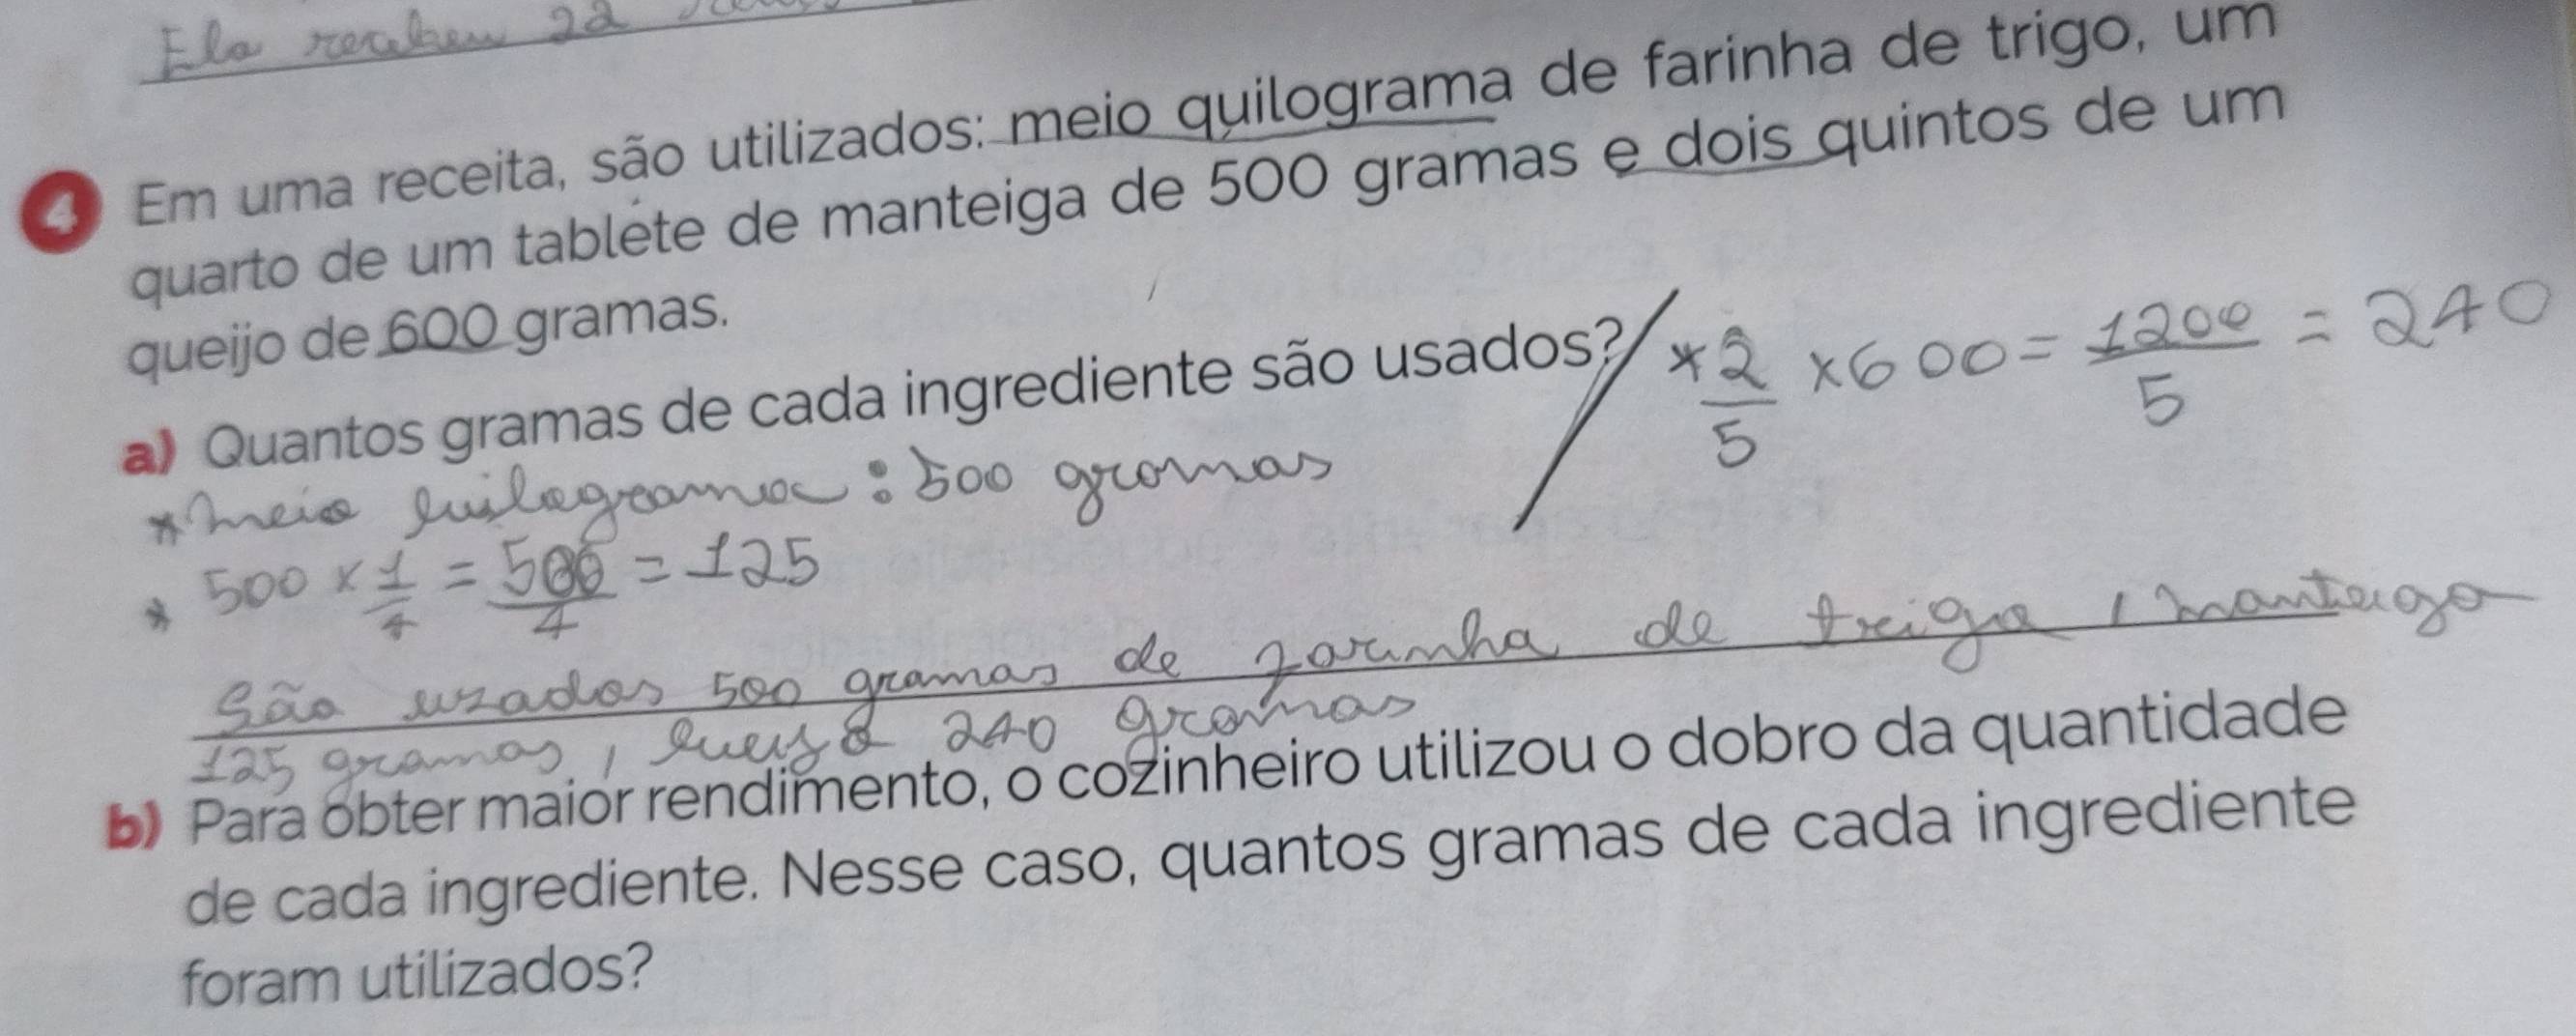 Ela recebeu 22
4 Em uma receita, são utilizados: meio quilograma de farinha de trigo, um
quarto de um tablete de manteiga de 500 gramas e dois quintos de um
queijo de 600 gramas.
a) Quantos gramas de cada ingrediente são usados? / * 2/5 x 600 = 1200/5 = 240
* meio quilograma : 500 gramas
* 500 x 1/4 = 500/4 = 125
São uzados 500 gramas de farinha de trigo, manteiga
125 gramas, queijo 240 gramas
b) Para obter maior rendimento, o cozinheiro utilizou o dobro da quantidade
de cada ingrediente. Nesse caso, quantos gramas de cada ingrediente
foram utilizados?